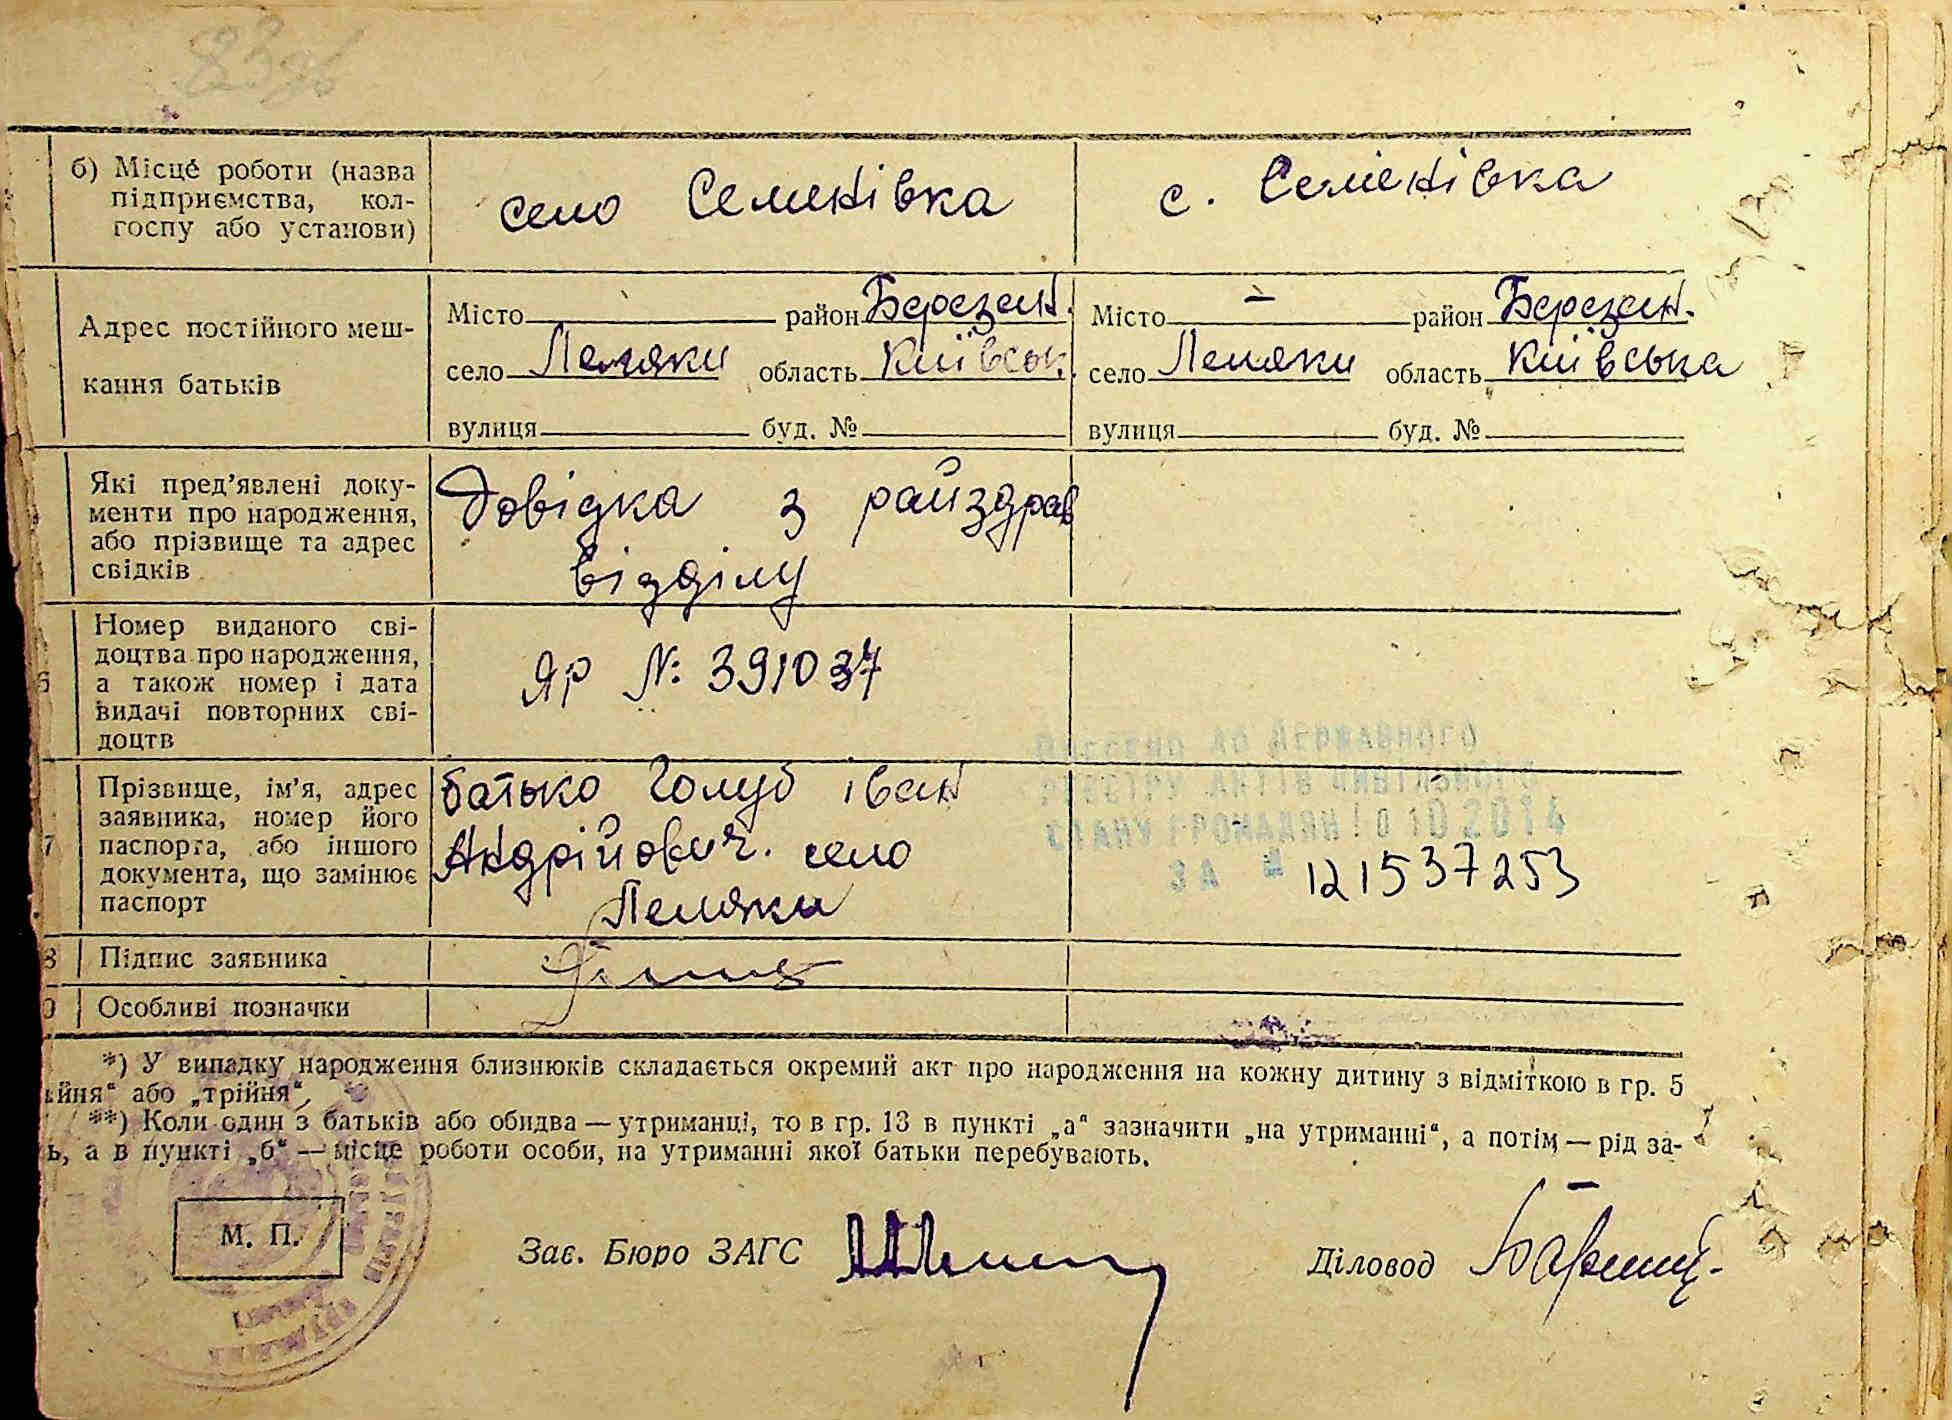 б) Місце роботи (назва
підприємства, кол-
госпу або установи)
село Семенівка
с. Семенівка
Адрес постійного меш-
кання батьків
Місто район Березан.
село Пемяки область Київськ.
вулиця буд. №
Місто — район Березан.
село Пемяки область Київська
вулиця буд. №
Які пред'явлені доку-
менти про народження,
або прізвище та адрес
свідків
Довідка з райздрав
відділу
Номер виданого сві-
доцтва про народження,
а також номер і дата
видачі повторних сві-
доцтв
ЯР №: 391037
Прізвище, ім'я, адрес
заявника, номер його
паспорта, або іншого
документа, що замінює
паспорт
батько Голуб іван
Андрійович. село
Пемяки
ВНЕСЕНО ДО ДЕРЖАВНОГО
РЕЄСТРУ АКТІВ ЦИВІЛЬНОГО
СТАНУ ГРОМАДЯН 10 10 2014
ЗА № 121537253
Підпис заявника
Особливі позначки
*) У випадку народження близнюків складається окремий акт про народження на кожну дитину з відміткою в гр. 5
йня“ або „трійня“.
**) Коли один з батьків або обидва — утриманці, то в гр. 13 в пункті „а“ зазначити „на утриманні“, а потім — рід за-
ь, а в пункті „б“ — місце роботи особи, на утриманні якої батьки перебувають.
М. П.
Зав. Бюро ЗАГС
Діловод